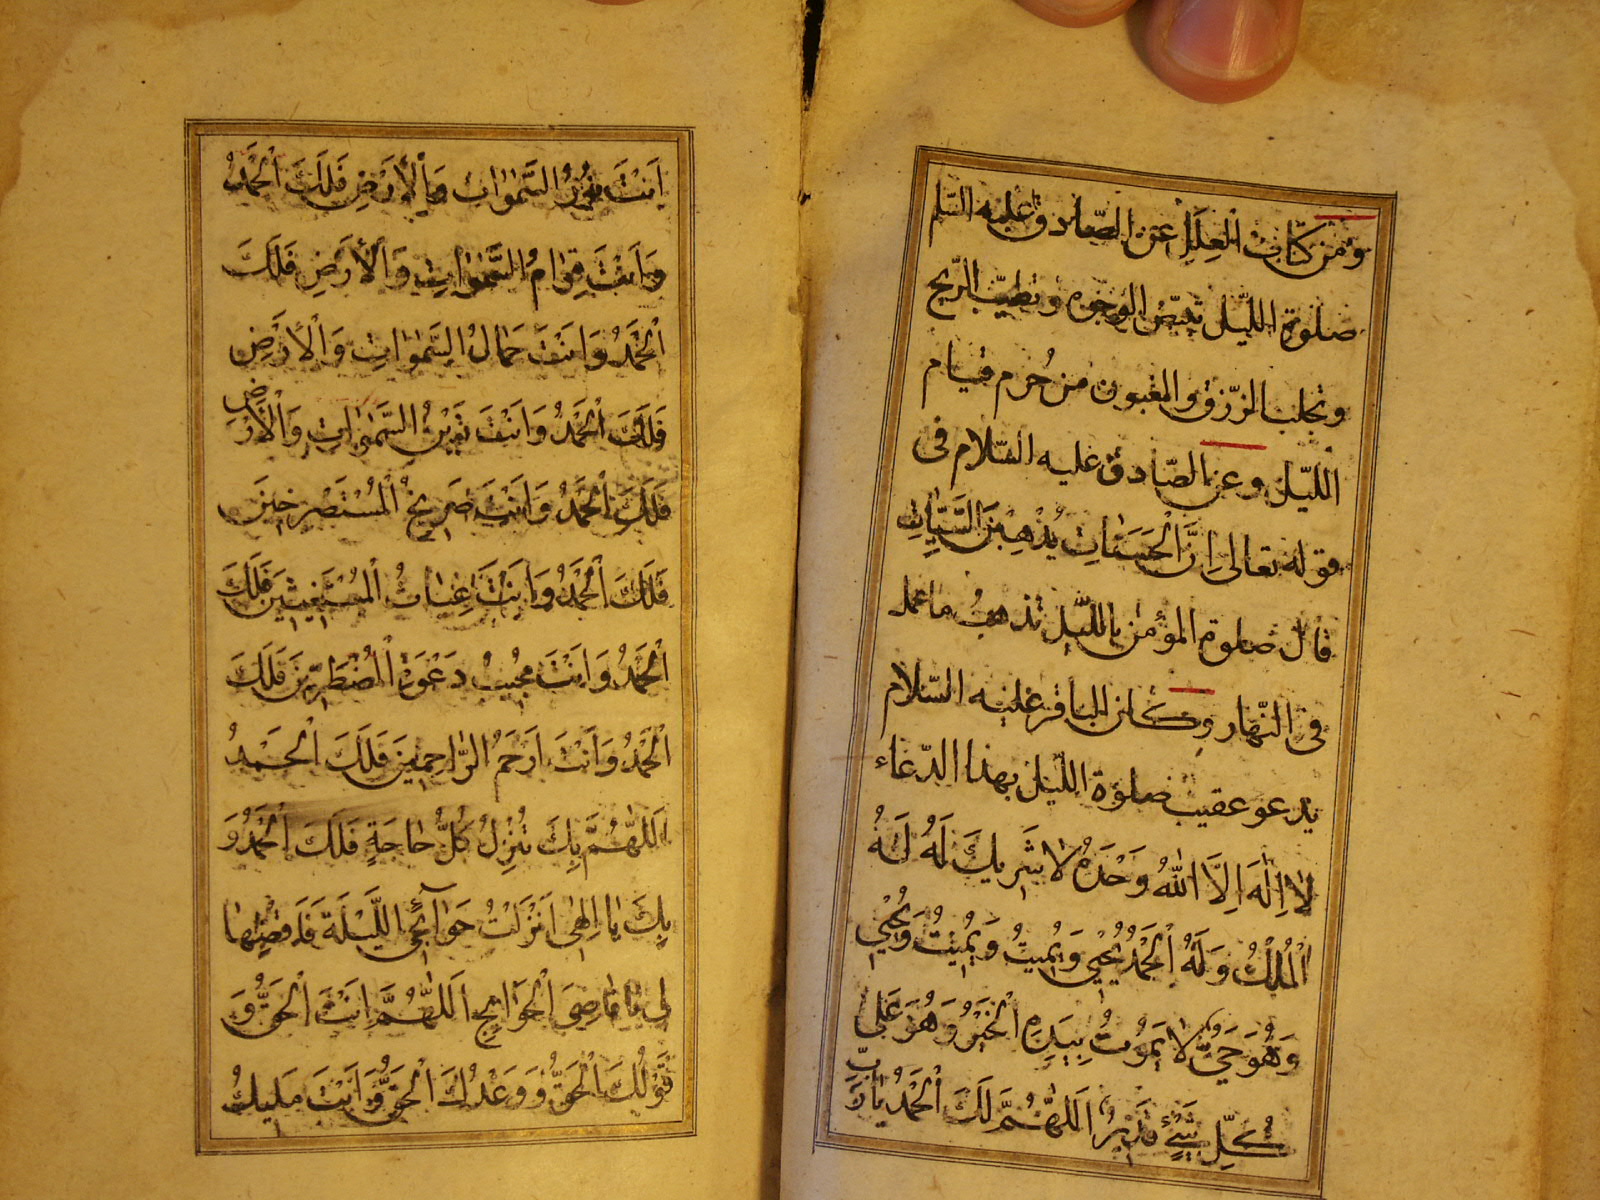 ومن كتاب العلل عن الصّادق عليه السّلم
صلوة اللّيل تبيّض الوجوه وتطيّب الرّيح
وتجلب الرّزق والمغبون من حُرم قيام
اللّيل وعن الصّادق عليه السّلام فى
قوله تعالى اِنَّ الْحَسَنٰاتِ يُذْهِبْنَ السَّيِّئٰاتِ
قال صلوة المؤمن باللّيل تذهبُ ما عمل
فى النّهار وكان الباقر عليه السّلام
يدعو عقيب صلوة اللّيل بهذا الدّعاء
لٰا اِلٰهَ اِلَّا اللّٰهُ وَحْدَهُ لٰا شَرِيكَ لَهُ لَهُ
الْمُلْكُ وَلَهُ الْحَمْدُ يُحْيِي وَيُمِيتُ وَيُمِيتُ وَيُحْيِي
وَهُوَ حَيٌّ لٰا يَمُوتُ بِيَدِهِ الْخَيْرُ وَهُوَ عَلىٰ
كُلِّ شَيْءٍ قَدِيرٌ اَللّٰهُمَّ لَكَ الْحَمْدُ يٰا رَبِّ
اَنْتَ نُورُ السَّمٰوٰاتِ وَالْأَرْضِ فَلَكَ الْحَمْدُ
وَاَنْتَ قِوٰامُ السَّمٰوٰاتِ وَالْأَرْضِ فَلَكَ
الْحَمْدُ وَاَنْتَ جَمٰالُ السَّمٰوٰاتِ وَالْأَرْضِ
فَلَكَ الْحَمْدُ وَاَنْتَ زَيْنُ السَّمٰوٰاتِ وَالْأَرْضِ
فَلَكَ الْحَمْدُ وَاَنْتَ صَرِيخُ الْمُسْتَصْرِخِينَ
فَلَكَ الْحَمْدُ وَاَنْتَ غِيٰاثُ الْمُسْتَغِيثِينَ فَلَكَ
الْحَمْدُ وَاَنْتَ مُجِيبُ دَعْوَةِ الْمُضْطَرِّينَ فَلَكَ
الْحَمْدُ وَاَنْتَ اَرْحَمُ الرّٰاحِمِينَ فَلَكَ الْحَمْدُ
اَللّٰهُمَّ بِكَ تُنْزِلُ كُلُّ حٰاجَةٍ فَلَكَ الْحَمْدُ وَ
بِكَ يٰا اِلٰهِي اَنْزَلْتُ حَوٰآئِجِي اللَّيْلَةَ فَاقْضِهٰا
لِي يٰا قٰاضِيَ الْحَوٰائِجِ اَللّٰهُمَّ اَنْتَ الْحَقُّ وَ
قَوْلُكَ الْحَقُّ وَوَعْدُكَ الْحَقُّ وَاَنْتَ مَلِيكُ